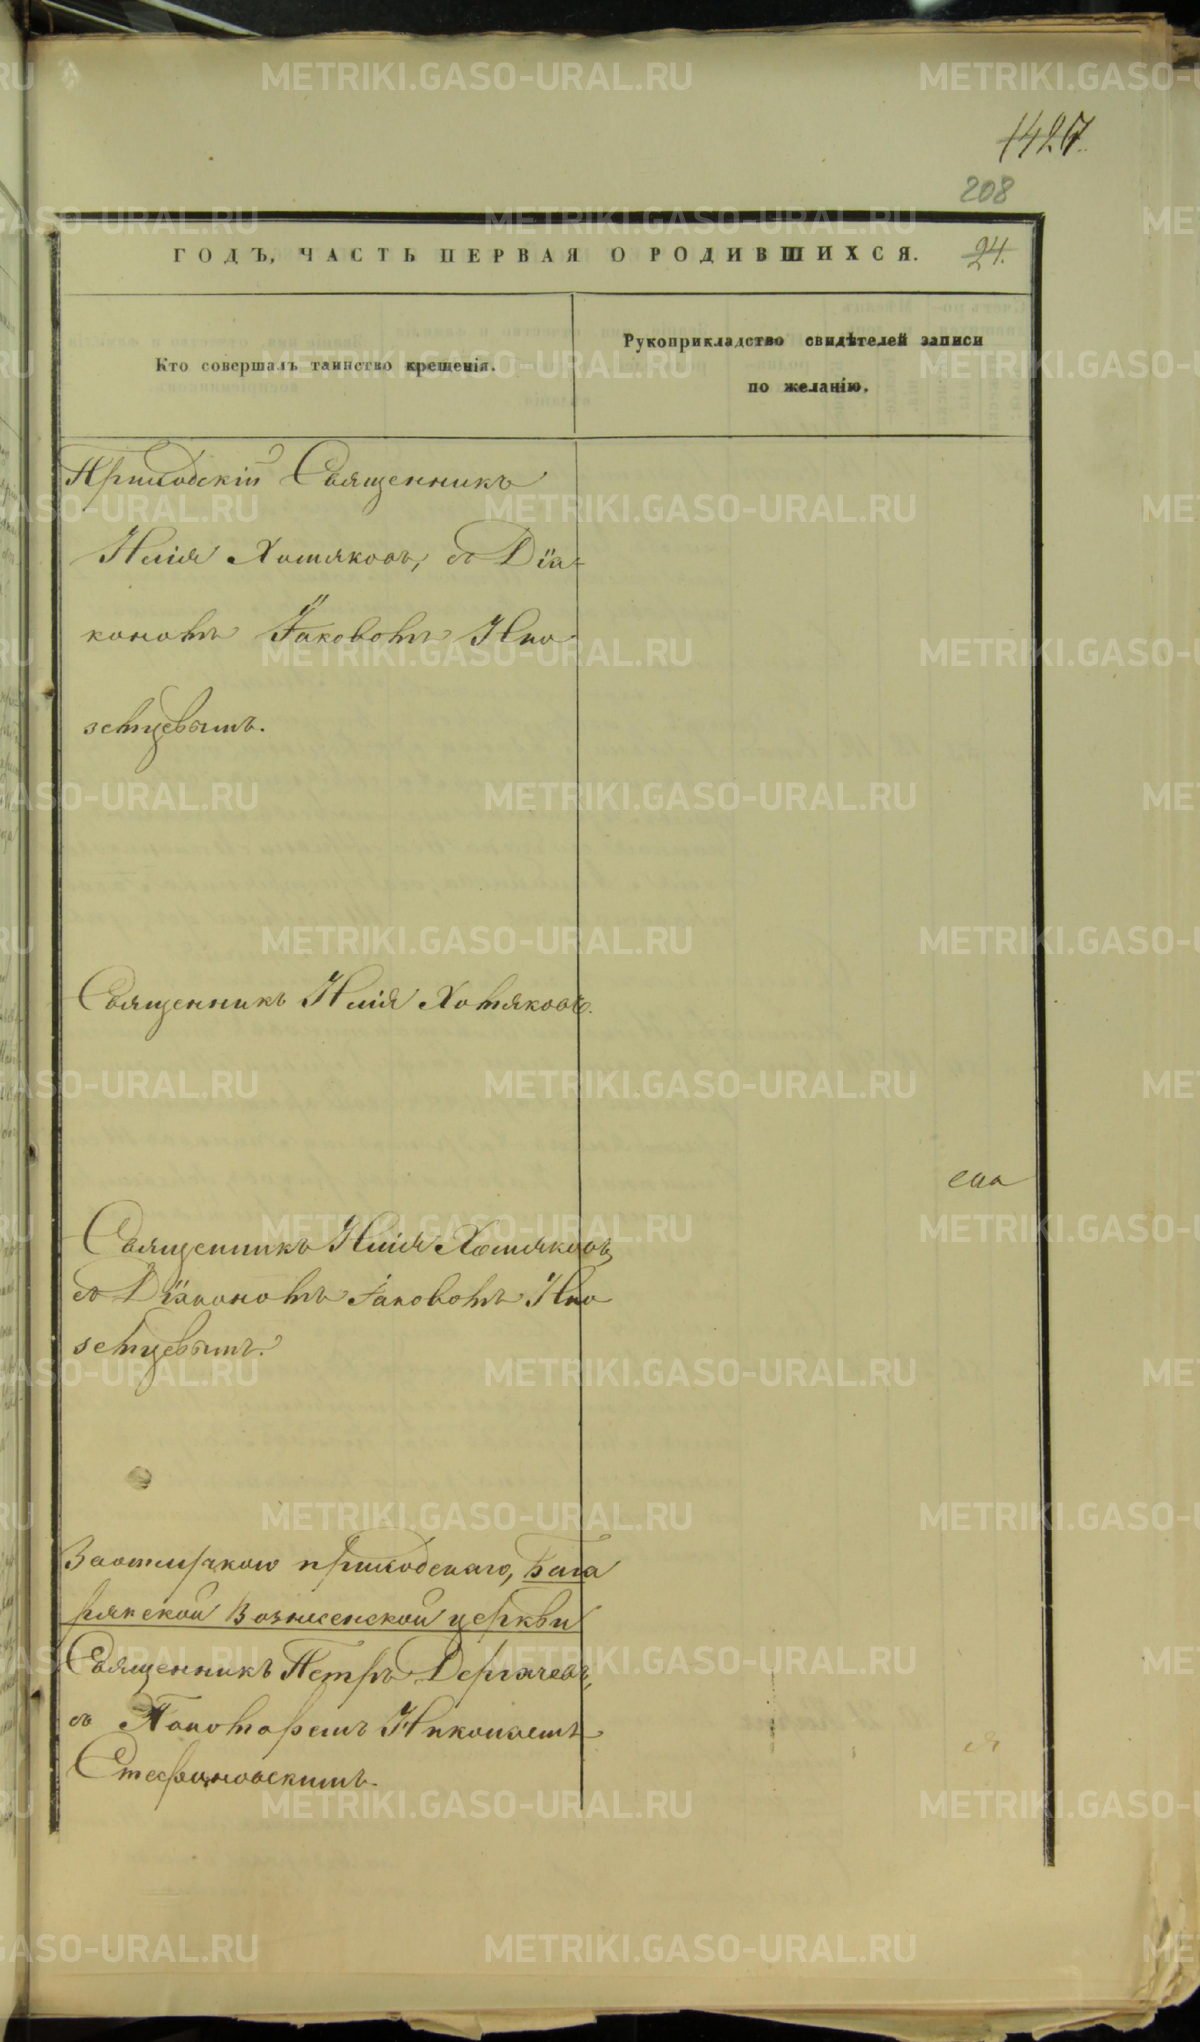 1427.
208
ГОДЪ, ЧАСТЬ ПЕРВАЯ О РОДИВШИХСЯ.
24.
Кто совершалъ таинство крещенія.
Рукоприкладство свидѣтелей записи
по желанію.
Приходскій Священникъ
Илія Хотяковъ, съ Діа-
кономъ Іаковомъ Ино
земцевымъ.
Священникъ Илія Хотяковъ.
Священникъ Илія Хотяковъ,
съ Діакономъ Іаковомъ Ино
земцевымъ.
приходскаго, Бага
рякской Вознесенской церкви
Священникъ Петръ Дергачевъ,
съ Пономаремъ Николаемъ
Стефановскимъ.
METRIKI.GASO-URAL.RU